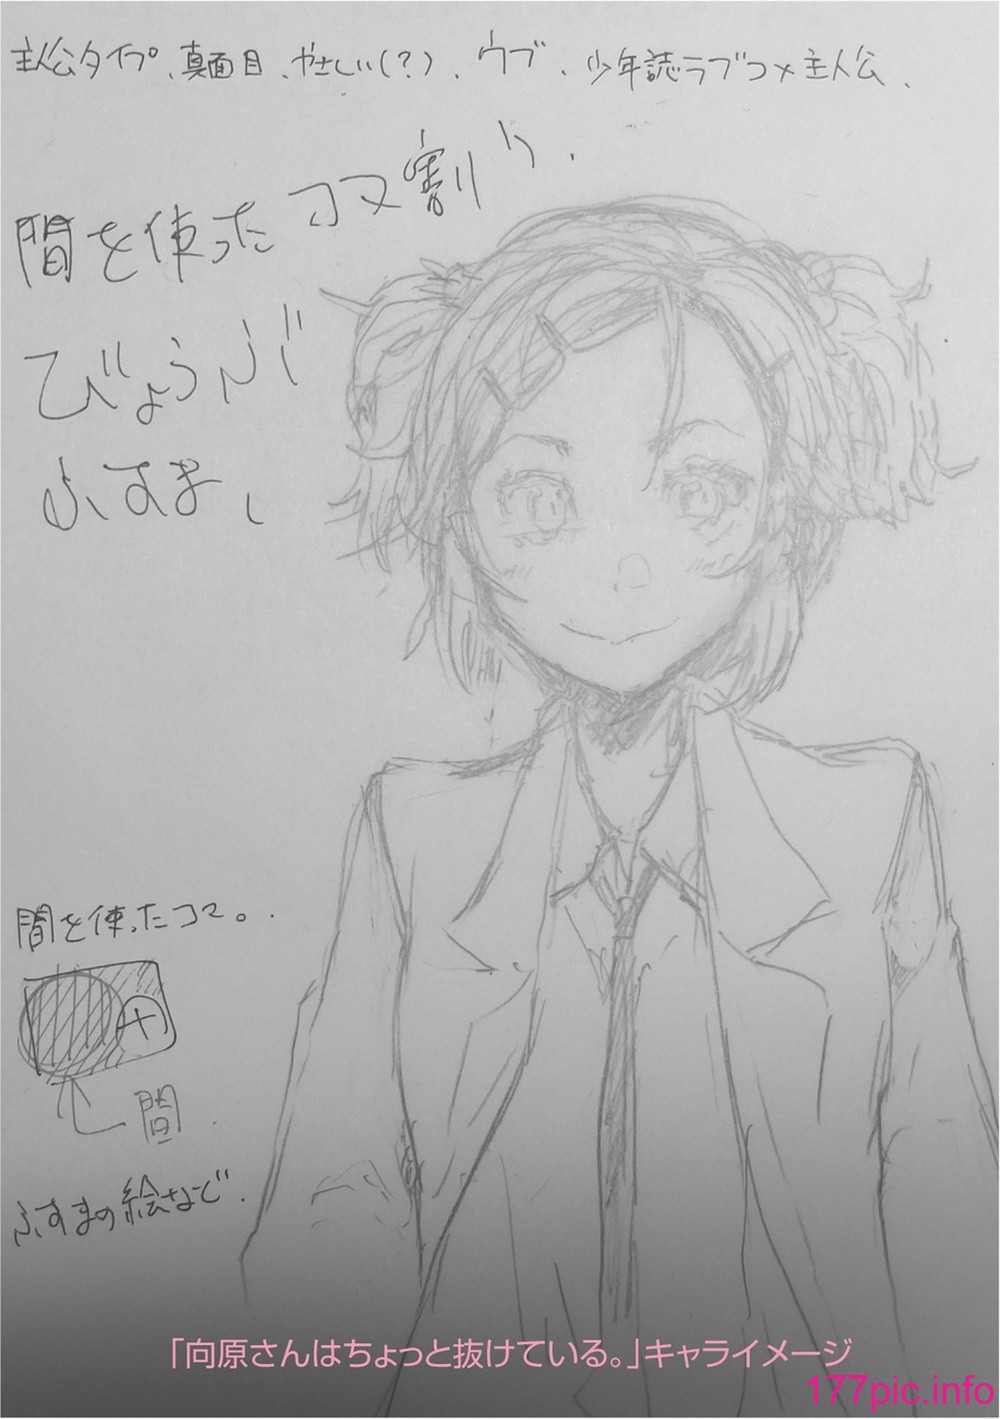 主人公タイプ、真面目、やさしい(?)、ウブ、少年誌ラブコメ主人公、
間を使ったコマ割り、
びょうぶ
ふすま、
間を使ったコマ。
間
ふすまの絵など、
「向原さんはちょっと抜けている。」キャライメージ
177pic.info